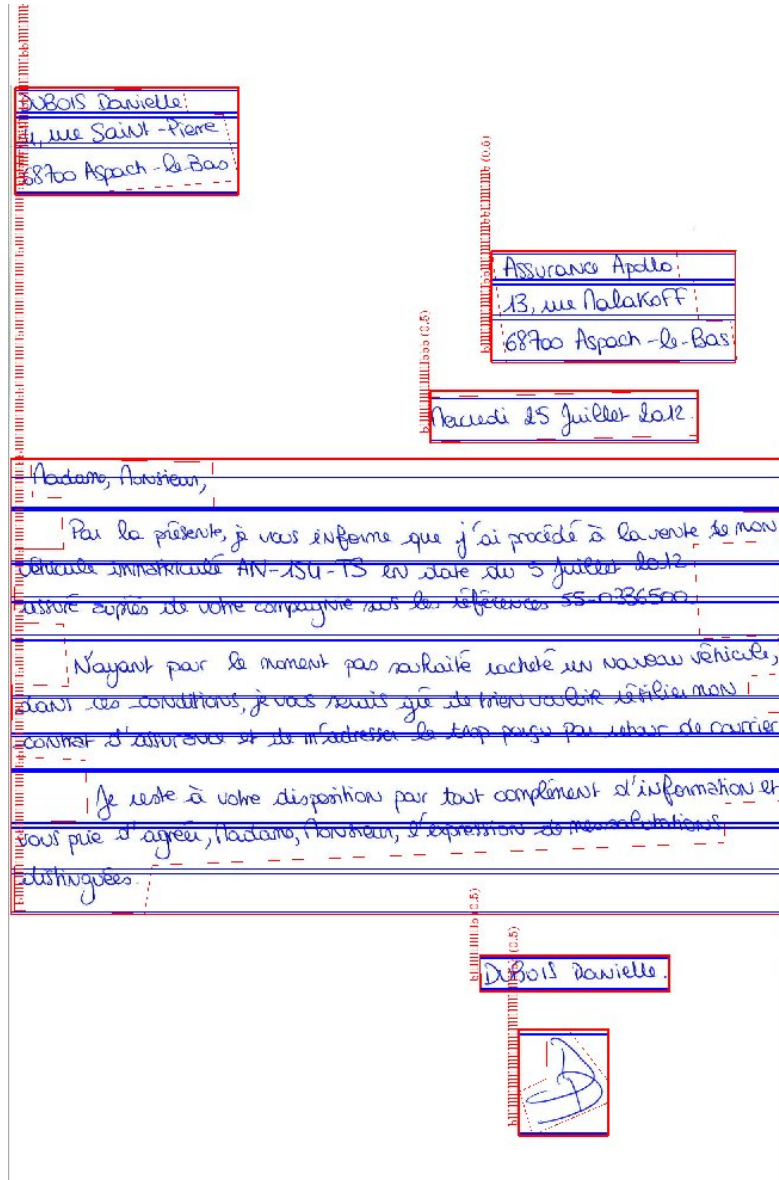 DUBOIS Danielle
4, rue Saint-Pierre
68700 Aspach-le-Bas
Assurance Apollo
13, rue Malakoff
68700 Aspach-le-Bas
Mercredi 25 Juillet 2012.
Madame, Monsieur,
Par la présente, je vous informe que j'ai procédé à la vente de mon
véhicule immatriculé AN-154-TS en date du 5 juillet 2012
assuré auprès de votre compagnie sous les références 55-0336500.
N'ayant pour le moment pas souhaité racheté un nouveau véhicule,
dans ces conditions, je vous serais gré de bien vouloir résilier mon
contrat d'assurance et de m'adresser le trop perçu par retour de courrier
Je reste à votre disposition pour tout complément d'information et
vous prie d'agréer, Madame, Monsieur, l'expression de mes salutations
distinguées.
DUBOIS Danielle.